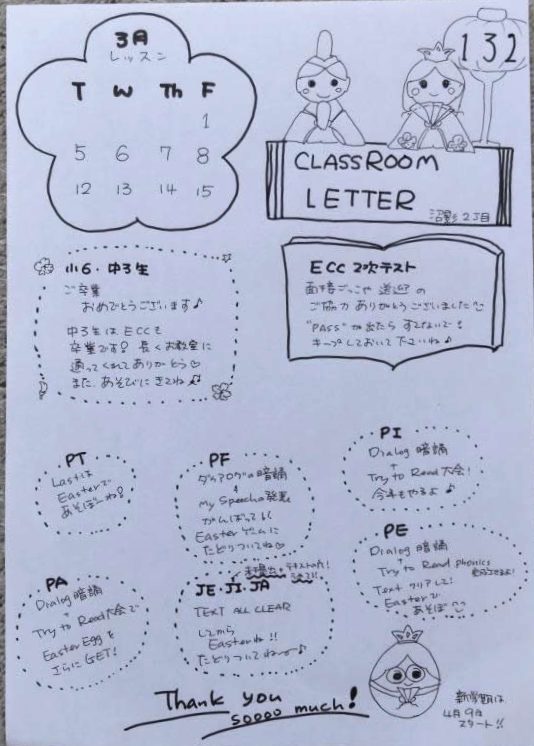 3月
レッスン
T W Th F
1
5 6 7 8
12 13 14 15
132
CLASSROOM
LETTER
沼影2丁目
小6・中3生
ご卒業
おめでとうございます♪
中3生はECCも
卒業です! 長くお教室に
通ってくれてありがとう♡
また あそびにきてね♪
ECC 2次テスト
面接ごっこや 送迎の
ご協力 ありがとうございました
"PASS"が出たら すてないで!
キープしておいて下さいね♪
PT
Lastは
Easterで
あそぼーね!
PF
ダイアログの暗誦
+
My Speech発表
がんばって!
Easterゲームに
たどりついてね♡
PI
Dialog 暗誦
+
Try to Read大会!
今年もやるよ♪
PE
Dialog 暗誦
+
Try to Read phonics
Text クリアして!
Easterで
あそぼ
PA
Dialog 暗誦
Try to Read大会で
Easter Eggを
さらにGET!
JE・JI・JA
TEXT ALL CLEAR
してから
Easterね!!
たどりついてね〜♪
Thank you
soooo much!
新学期は
4月9日
スタート!!